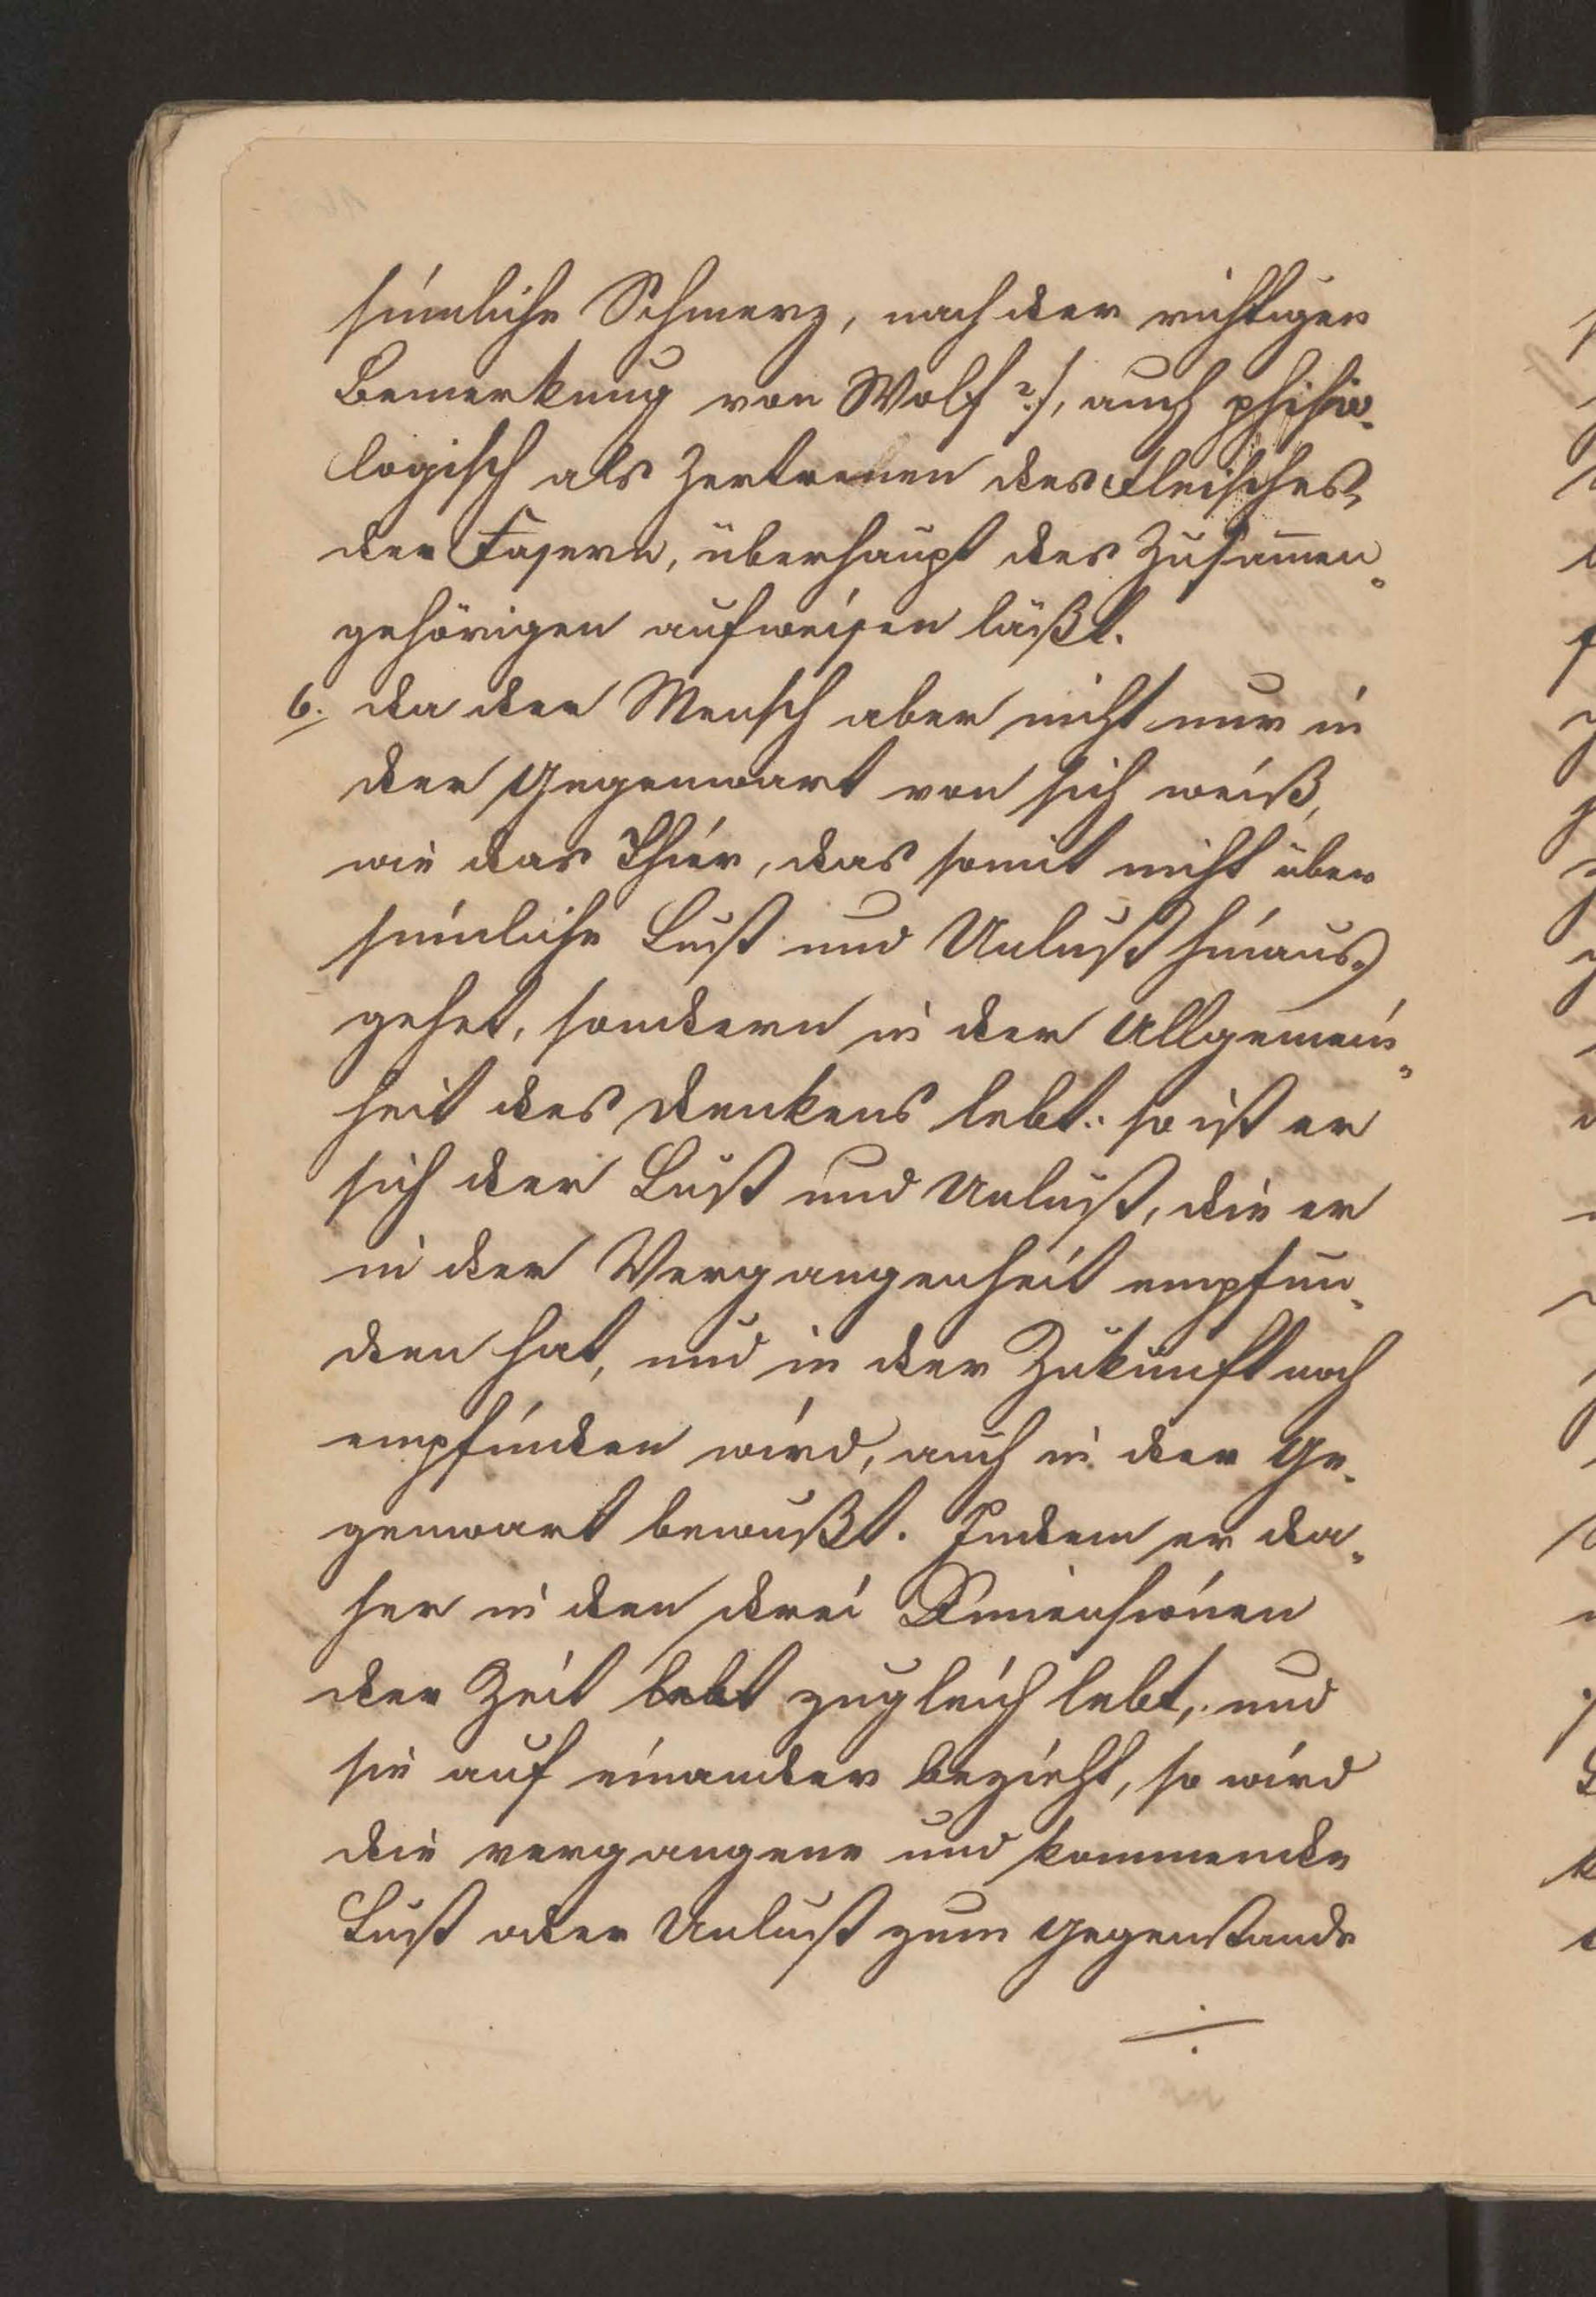 sinnliche Schmerz, nach der richtigen
Bemerkung von Wolf ?/, auch phisio-
logisch als Zertrennen des Fleisches,
der Fasern, überhaupt des Zusam̅en-
gehörigen aufweisen läßt.
6. da der Mensch aber nicht nur in
der Gegenwart von sich weiß,
wie das Thier, das somit nicht über
sinnliche Lust und Unlust hinaus-
gehet, sondern in der Allgemein-
heit des denkens lebt: so ist er
sich der Lust und Unlust, die er
in der Vergangenheit empfun-
den hat, und in der Zukunft noch
empfinden wird, auch in der Ge-
genwart bewußt. Indem er da-
her in den drei Dimensionen
der Zeit lebt zugleich lebt, und
sie auf einander bezieht, so wird
die vergangene und kommende
Lust oder Unlust zum Gegenstande